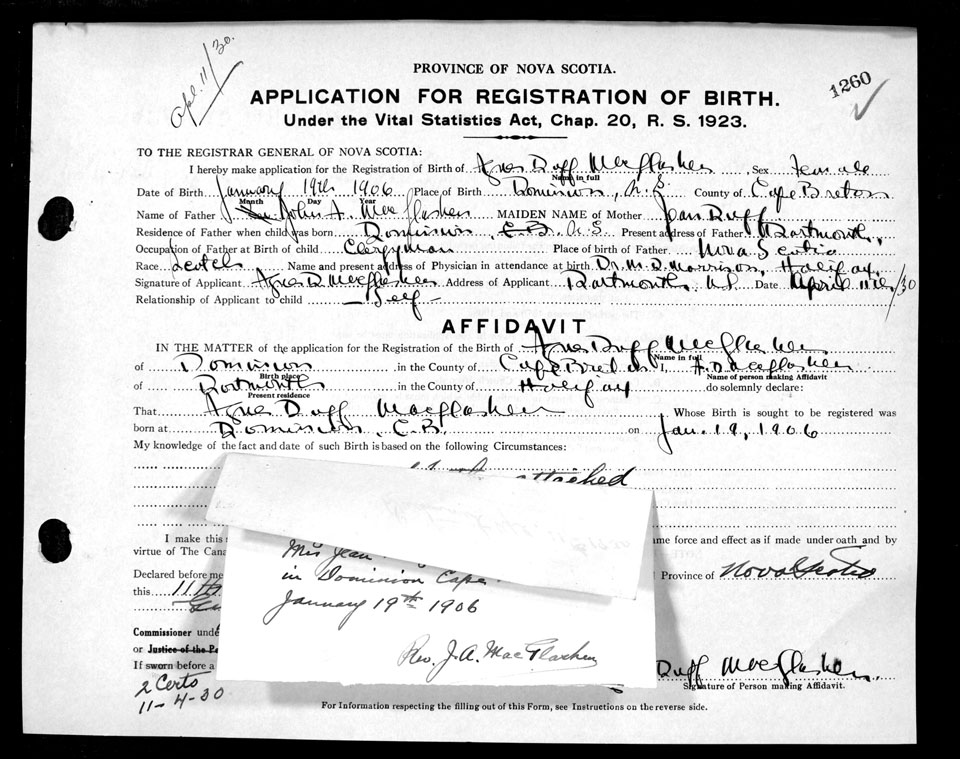 Apl. 11/30.
1260
PROVINCE OF NOVA SCOTIA.
APPLICATION FOR REGISTRATION OF BIRTH.
Under the Vital Statistics Act, Chap. 20, R. S. 1923.
TO THE REGISTRAR GENERAL OF NOVA SCOTIA:
I hereby make application for the Registration of Birth of Agnes Duff MacGlashen Sex female
Name in full
Date of Birth January 19th 1906 Place of Birth Dominion, N.S. County of Cape Breton
Month Day Year
Name of Father John A. MacGlashen MAIDEN NAME of Mother Jean Duff
Residence of Father when child was born Dominion, C.B. N.S Present address of Father Dartmouth,
Occupation of Father at Birth of child Clergyman Place of birth of Father Nova Scotia
Race Scotch Name and present address of Physician in attendance at birth Dr. M. D. Morrison, Halifax.
Signature of Applicant Agnes D. MacGlashen Address of Applicant Dartmouth, N.S. Date April 11th/30
Relationship of Applicant to child —Self—
AFFIDAVIT
IN THE MATTER of the application for the Registration of the Birth of Agnes Duff MacGlashen
Name in full
of Dominion in the County of Cape Breton I, A. D. MacGlashen
Birth place Name of person making Affidavit
of Dartmouth in the County of Halifax do solemnly declare:
Present residence
That Agnes Duff MacGlashen Whose Birth is sought to be registered was
born at Dominion, C.B. on Jan. 19, 1906
My knowledge of the fact and date of such Birth is based on the following Circumstances:
attached
I make this me force and effect as if made under oath and by
virtue of The Cana Province of Nova Scotia
Declared before me
this 11th
Miss Jean
in Dominion Cape
January 19th 1906
Rev. J. A. MacGlashen
Commissioner unde
or Justice of the Pe
If sworn before a
Duff MacGlashen
Signature of Person making Affidavit.
2 Certs
11-4-30
For Information respecting the filling out of this Form, see Instructions on the reverse side.